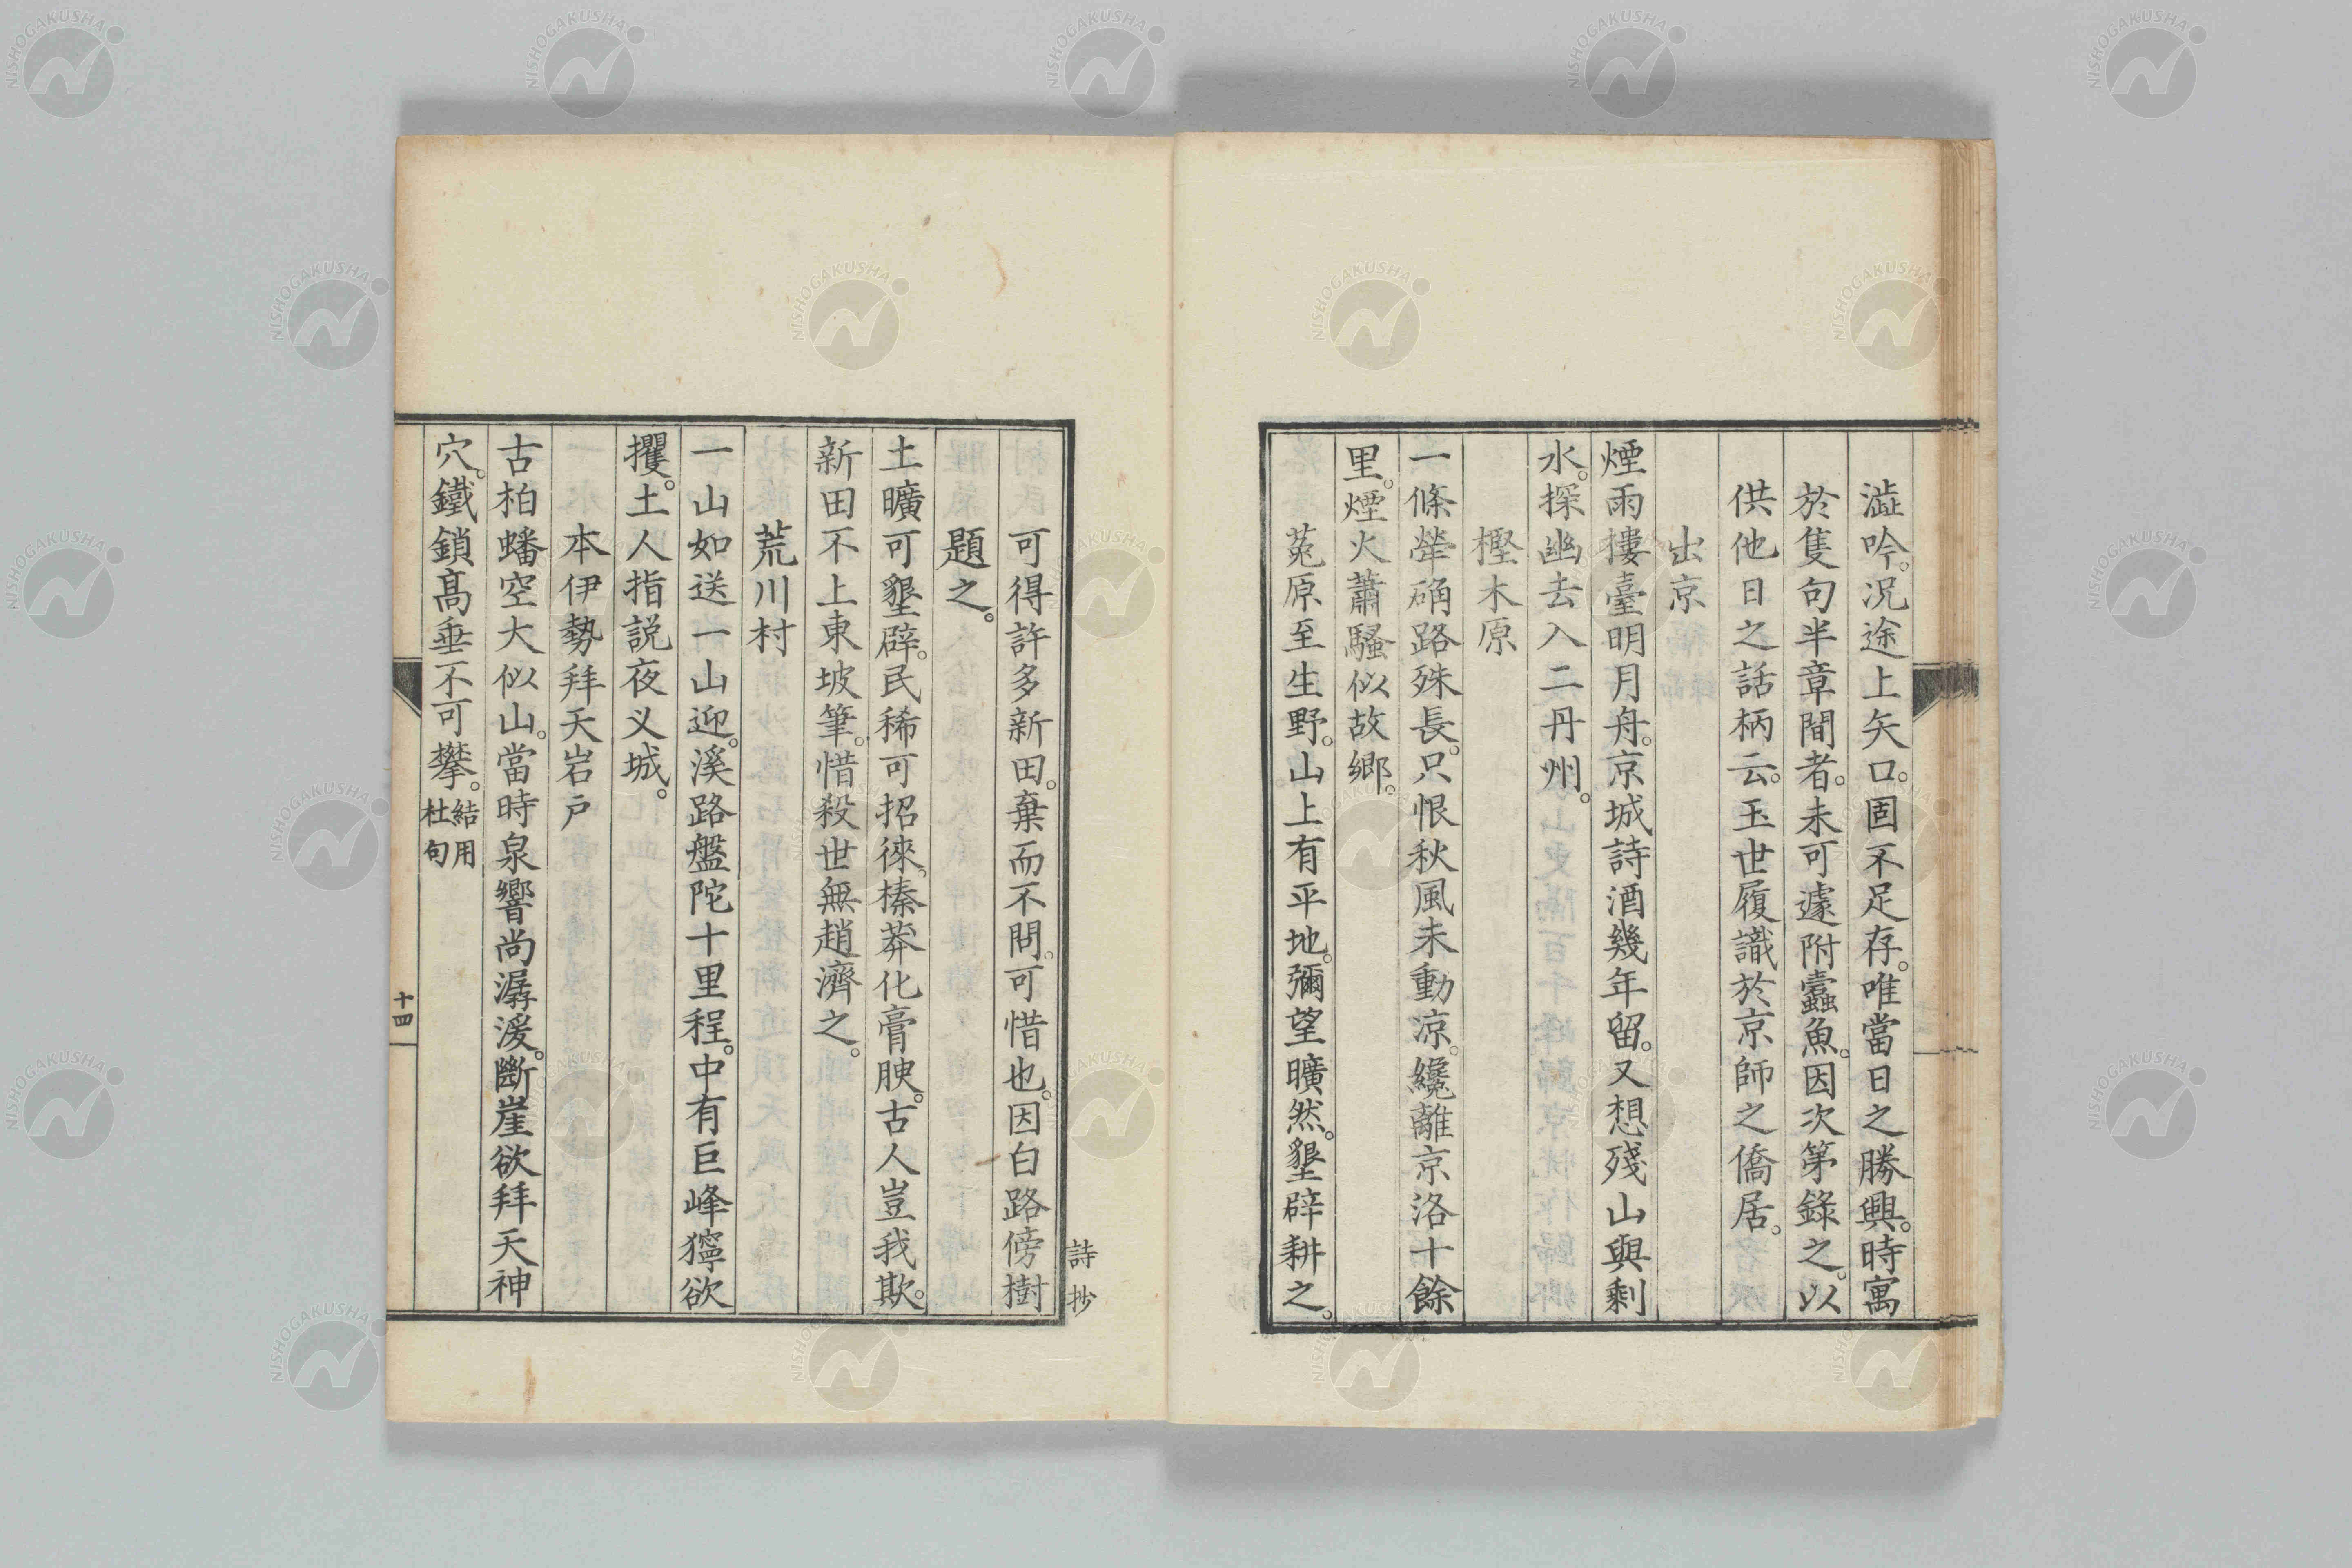 澁吟。況途上矢口。固不足存。唯當日之勝興。時寓
於隻句半章間者。未可遽附蠧魚。因次第錄之。以
供他日之話柄云。玉世履識於京師之僑居。
出京
煙雨樓臺明月舟。京城詩酒幾年留。又想殘山與剩
水。探幽去入二丹州。
樫木原
一條犖确路殊長。只恨秋風未動凉。纔離京洛十餘
里。煙火蕭騷似故鄉。
菟原至生野。山上有平地。彌望曠然。墾辟耕之。
可得許多新田。棄而不問。可惜也。因白路傍樹
題之。
土曠可墾辟。民稀可招徠。榛莽化膏腴。古人豈我欺。
新田不上東坡筆。惜殺世無趙濟之。
荒川村
一山如送一山迎。溪路盤陀十里程。中有巨峰獰欲
攫。土人指説夜叉城。
本伊勢拜天岩戸
古柏蟠空大似山。當時泉響尚潺湲。斷崖欲拜天神
穴。鐵鎖髙垂不可攀。結用杜句
詩抄
十四
NISHOGAKUSHA